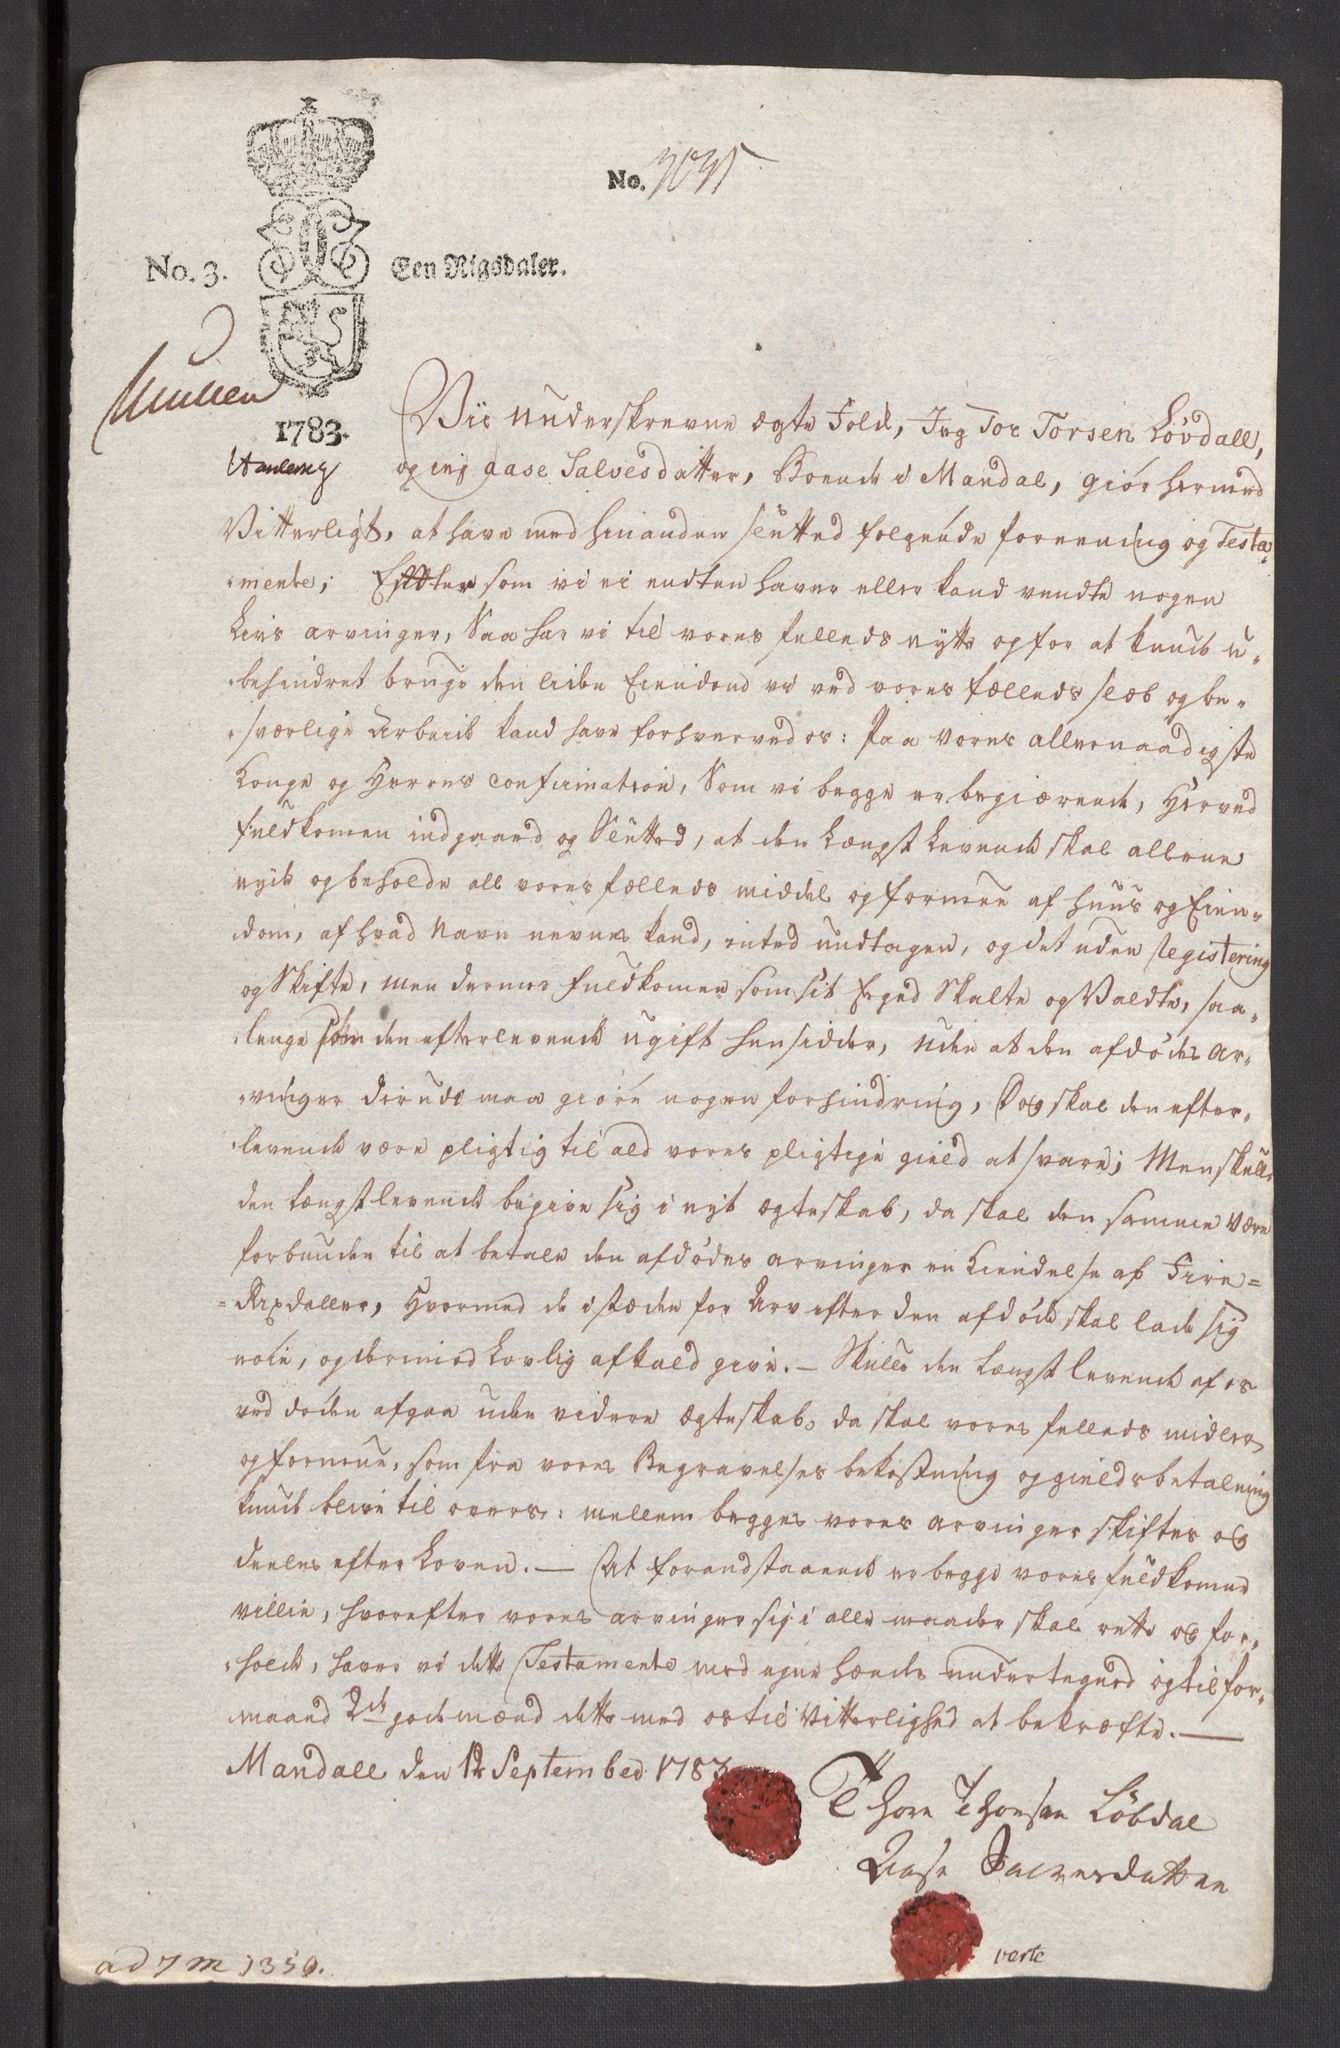 No. 3035
No. 3. Een Rigsdaler.
1783.
Vii underskrevne ægte Folk, Jeg Tor Torsen Lövdall,
og ieg aase Salvesdatter, Boende i Mandal, giör hermed
Vitterligt, at have med hinanden slutted folgende forening og Testa-
-mente; Efter som vi ei endten haver eller kand vendte nogen
Livs arvinger, Saa har vi til vores felleds nytte og for at kunde u-
-behindret bruge den lidne Eiendend vi ved vores fælleds slæb og be-
-sværlige Arbeide kand have forhverved os: Paa Vores allernaadigste
Konge og Herres confirmation, Som vi begge er begiærende, Herved
fuldkomen indgaaed og Slutted, at den Længst Levende skal allene
nyde og beholde all vores fælleds middel og formue af huus og Eien-
-dom, af hvad Navn nevnes kand, inted undtagen, og det uden Registering
og Skifte, men dermed fuldkomen som sit Eged Skalte og Valdte, saa-
-lenge som den efterlevende ugift hensidder, uden at den afdödes ar-
-vinger derudi maa giöre nogen forhindring, Dog skal den efter-
-levende være pligtig til ald vores pligtige gield at svare; Men skulle
den Længst levende begive sig i nyt ægteskab, da skal den samme være
forbunden til at betale den afdödes arvinger en Kiendelse af Fire=
=Rixdaller, Hvormed de i stæden for Arv efter den afdöde skal lade sig
nöie, og dermed Lovlig afkald give. - Skulle den Længst levende af os
ved döden afgaa uden videre ægteskab, da skal vores felleds midler
og formue, som fra vores Begravelses bekostning og gields betaling
kund blive til overs: mellem begges vores arvinger skiftes og
deeles efter Loven. - At forandstaaende er begge vores fuldkomne
villie, hvorefter vores arvinger sig i alle maader skal rette og for-
-holde, haver vi dette Testamente med egne hænds undertegned og til for-
maaed 2de gode mænd dette med os til Vitterlighed at bekræfte. -
Mandall den 12 September 1783
Thore Thorsen Löbdal
Aase Salvesdatter
verte
ad 7 M 1350.